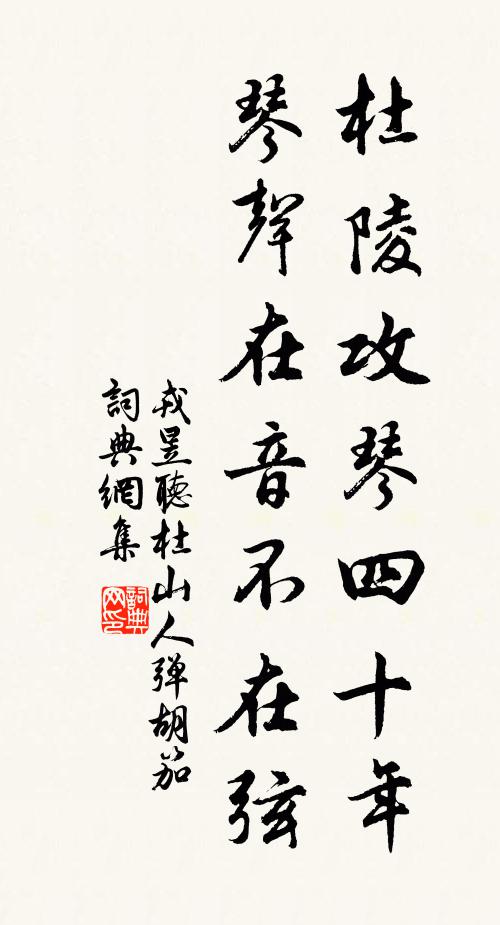 杜陵攻琴四十年
琴聲在音不在弦
戎昱聽杜山人弹胡笳
詞典網集
詞典
网印